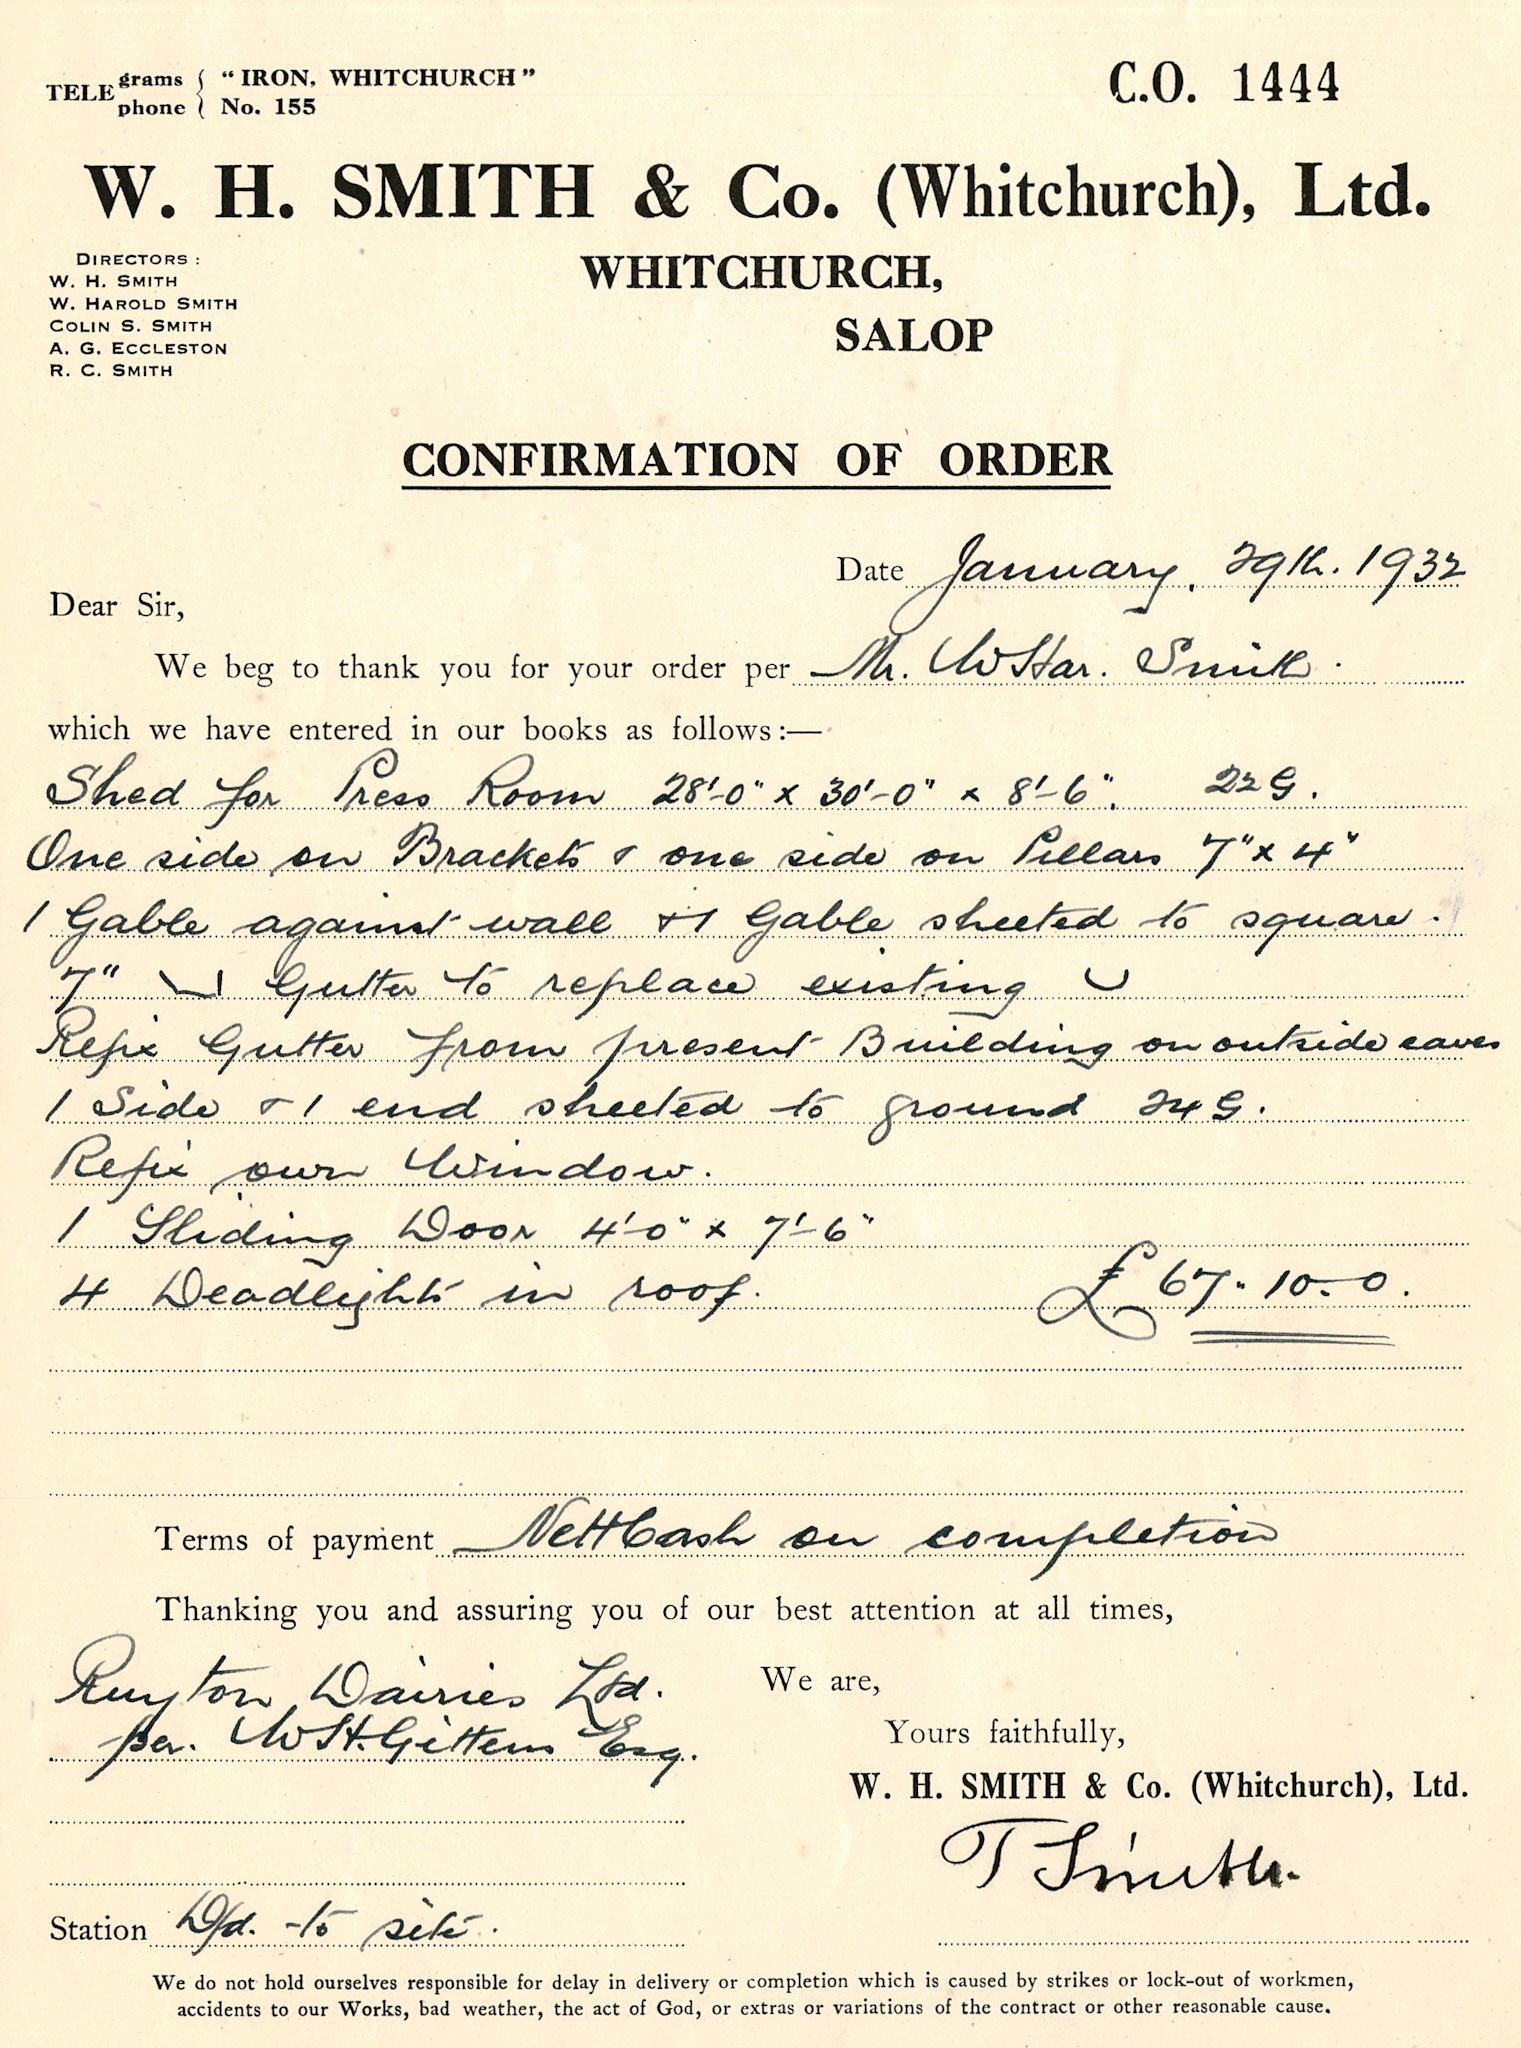 TELE grams { " IRON, WHITCHURCH "
phone { No. 155
C.O. 1444
W. H. SMITH & Co. (Whitchurch), Ltd.
WHITCHURCH,
SALOP
DIRECTORS :
W. H. SMITH
W. HAROLD SMITH
COLIN S. SMITH
A. G. ECCLESTON
R. C. SMITH
CONFIRMATION OF ORDER
Date January, 29th. 1932
Dear Sir,
We beg to thank you for your order per Mr. W Har. Smith.
which we have entered in our books as follows:—
Shed for Press Room 28'-0" x 30'-0" x 8'-6". 22 G.
One side on Brackets & one side on Pillars 7" x 4"
1 Gable against wall & 1 Gable sheeted to square.
7" Gutter to replace existing
Refix Gutter from present Building on outside eaves
1 Side & 1 end sheeted to ground 24 G.
Refix own Window.
1 Sliding Door 4'-0" x 7'-6"
4 Deadlights in roof. £67-10-0.
Terms of payment Nett Cash on completion
Thanking you and assuring you of our best attention at all times,
Ruyton Dairies Ltd.
per. W H. Gittens Esq.
We are,
Yours faithfully,
W. H. SMITH & Co. (Whitchurch), Ltd.
T Smith.
Station D/d. to site.
We do not hold ourselves responsible for delay in delivery or completion which is caused by strikes or lock-out of workmen,
accidents to our Works, bad weather, the act of God, or extras or variations of the contract or other reasonable cause.